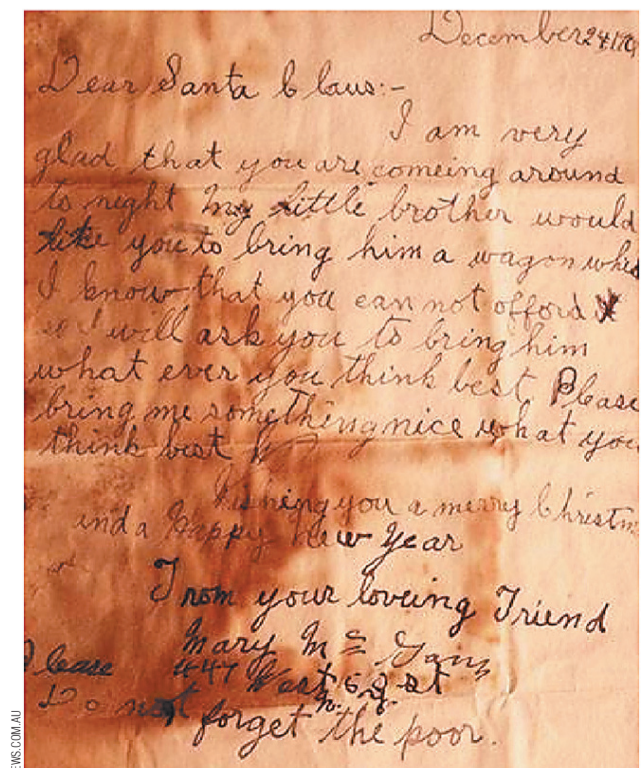 December 24 19
Dear Santa Claus:-
I am very
glad that you are comeing around
to night My little brother would
like you to bring him a wagon
I know that you can not afford
so I will ask you to bring him
what ever you think best. Please
bring me something nice what you
think best
Wishing you a merry Christm
and a happy new year
From your loveing Friend
Mary Mc
447 West
Please
Do not forget the poor.
EWS.COM.AU